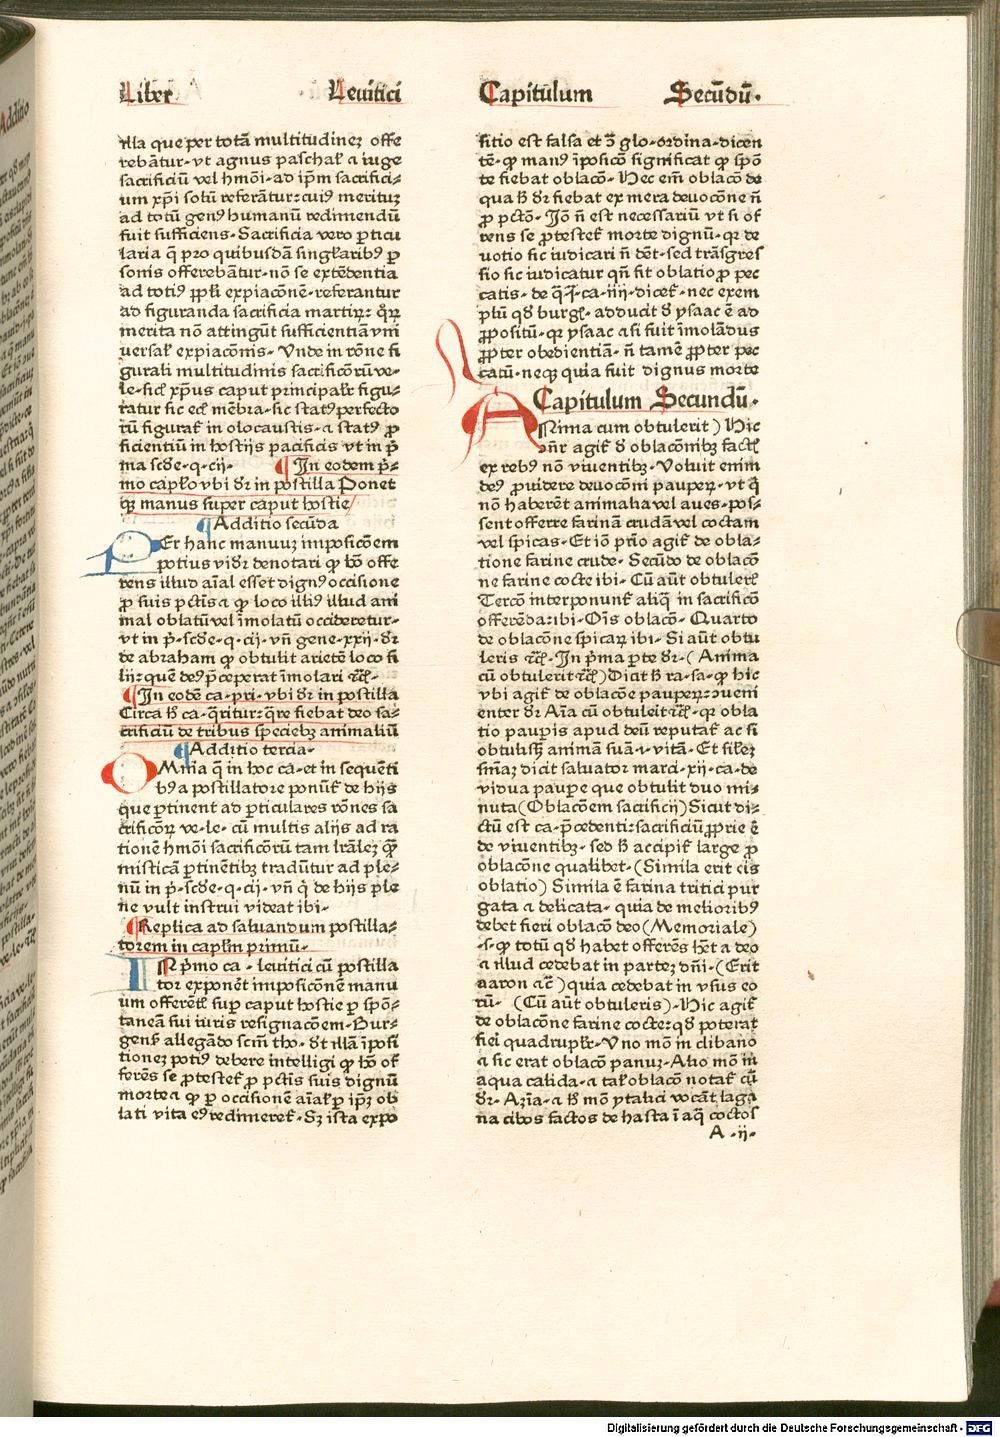 Liber Leuitici
illa que per totā multitudinez offe
rebātur·vt agnus paschal̓ a iuge
sacrificiū vel hmōi·ad ip̄m sacrifici⸗
um xp̄i solū referātur:cuiꝰ merituz
ad totū genꝰ humanū redimendū
fuit sufficiens·Sacrificia vero ꝑticu
laria q̄ pro quibusdā singl̓aribꝰ ꝑ
sonis offerebātur·nō se extēdentia
ad totiꝰ pp̄l̓i expiacōnē·referantur
ad figuranda sacrificia martiꝝ: qꝝ̄
merita nō attingūt sufficientiā vni
uersal̓ expiacōnis·Vnde in rōne fi
gurali multitudinis sacrificōrū ve⸗
le·sic̄ xp̄us caput principal̓r figu⸗
ratur sic ecl̓ mēbra·sic statꝰ perfecto
rū figurat̓ in olocaustis·a statꝰ ꝓ
ficientiū in hostijs pacificis vt in p̄
ma scd̓e·q·cij· ¶In eodem p̄⸗
mo cap̄l̓o vbi dr̄ in postilla Ponet
qꝫ manus super caput hostie
¶Additio secūda
PEr hanc manuuꝫ imposicōem
potius vid̓r denotari ꝙ hō offe
rens illud aīal esset dignꝰ occisione
ꝓ suis pctīs a ꝙ loco illiꝰ illud ani
mal oblatū vel īmolatū occideretur·
vt in p̄·scd̓e·q·cij·vn̄ gene·xxij·dr̄
de abraham ꝙ obtulit arietē loco fi
lij:quē deꝰ p̄ceperat īmolari ⁊c̄·
¶In eodē ca·pri·vbi dr̄ in postilla
Circa h̄ ca·q̄ritur:q̄re fiebat deo sa⸗
crificiū de tribus speciebꝫ animaliū
¶Additio tercia·
OMnia q̄ in hoc ca·et in sequēti
bꝰ a postillatore ponūt̓ de hijs
que ꝑtinent ad ꝑticulares rōnes sa
crificōꝝ ve·le· cū multis alijs ad ra
tionē hmōi sacrificōrū tam lrāleꝫ ꝙ̄
misticā ꝑtinētibꝫ tradūtur ad ple⸗
nū in p̄·scd̓e·q·cij·vn̄ q̓ de hijs ple
ne vult instrui videat ibi·
¶Replica ad saluandum postilla⸗
torem in capl̄m primū·
IN p̄mo ca·leuitici cū postilla
tor exponēt imposicōnē manu
um offerētl̓ suꝑ caput hostie ꝑ spō⸗
taneā sui iuris resignacōem·Bur⸗
gens̓ allegādo scm̄ tho· d̓t illā īposi
tioneꝫ potiꝰ debere intelligi ꝙ hō of̓
ferēs se ꝓtestet̓ ꝓ pctīs suis dignū
morte a ꝙ ꝑ occisionē aīal̓ꝑ ip̄ꝫ ob
lati vita eꝰ redimeret̓·Sꝫ ista expo
Capitulum Secūdū·
sitio est falsa et ꝯ̄ glo·ordina·dicen
tē·ꝙ manꝰ īposicō significat ꝙ spō
te fiebat oblacō·Nec em̄ oblacō de
qua h̄ dr̄ fiebat ex mera deuocōne n̄
ꝓ pctō·Iō n̄ est necessariū vt si of̓
rens se ꝓtestet̓ morte dignū·qꝛ de
uotio sic iudicari n̄ dēt·sed trāsgres
sio sic iudicatur qn̄ fit oblatio ꝓ pec
catis·de q̓ ī·ca·iiij·dicet̓·nec exem
plū qd̓ burgl̓·adducit d̓ ysaac ē ad
ꝓpositū·qꝛ ysaac a si fuit īmolādus
ꝓpter obedientiā·n̄ tamē ꝓpter pec
catū·neqꝫ quia fuit dignus morte
Capitulum Secundū·
ANima cum obtulerit) Hic
ꝯn̄r agit̓ d̓ oblacōnibꝫ factl̓
ex rebꝰ nō viuentibꝫ·Voluit enim
deꝰ ꝓuidere deuocōni pauperꝝ·vt q̓
nō haberēt animalia vel aues·pos⸗
sent offerre farinā crudā vel coctam
vel spicas·Et iō p̄mo agit̓ de obla⸗
tione farine crude· Secūdo de oblacō
ne farine cocte ibi·Cū aūt obtulerl̓
Tercō interponunt̓ aliq̓ in sacrificō
offerēda:ibi·Oīs oblacō·Quarto
de oblacōne spicaꝝ ibi·Si aūt obtu
leris ⁊c̄·In p̄ma ꝑte dr̄·(Anima
cū obtulerit ⁊c̄)Dicit h̄ ra·sa·ꝙ hic
vbi agit̓ de oblacōe pauperꝝ:ꝯueni
enter dr̄ Aīa cū obtuleit ⁊c̄·qꝛ obla
tio pauꝑis apud deū reputat̓ ac si
obtulissꝫ animā suā·i·vitā·Et sil̓eꝫ
sn̄iaꝫ dicit saluator marci·xij·ca·de
vidua pauꝑe que obtulit duo mi⸗
nuta(Oblacōem sacrificij)Sicut di⸗
ctū est ca·p̄cedenti:sacrificiū ꝓprie ē
de viuentibꝫ·sed h̄ accipit̓ large ꝓ
oblacōne qualibet·(Simila erit eis
oblatio) Simila ē farina tritici pur
gata a delicata· quia de melioribꝰ
debet fieri oblacō deo(Memoriale)
·s·ꝙ totū qd̓ habet offerēs hꝫt a deo
a illud cedebat in parteꝫ dn̄i·(Erit
aaron ⁊c̄)quia cedebat in vsus eo
rū· (Cū aūt obtuleris)·Hic agit̓
de oblacōne farine cocte:qd̓ poterat
fieri quadrupl̓r·Vno mō in clibano
a sic erat oblacō panuꝫ·Alio mō in
aqua calida·a tal̓ oblacō notat̓ cū
dr̄·Aꝫīa·a h̄ mō ytalici vocāt laga
na cibos factos de hasta ī aq̓ coctos
A·ij·
Digitalisierung gefördert durch die Deutsche Forschungsgemeinschaft · DFG